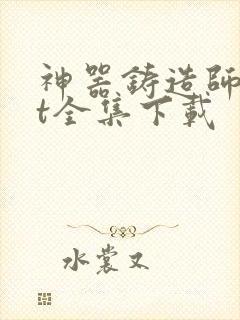 神器铸造師
t全集下載
水裳又